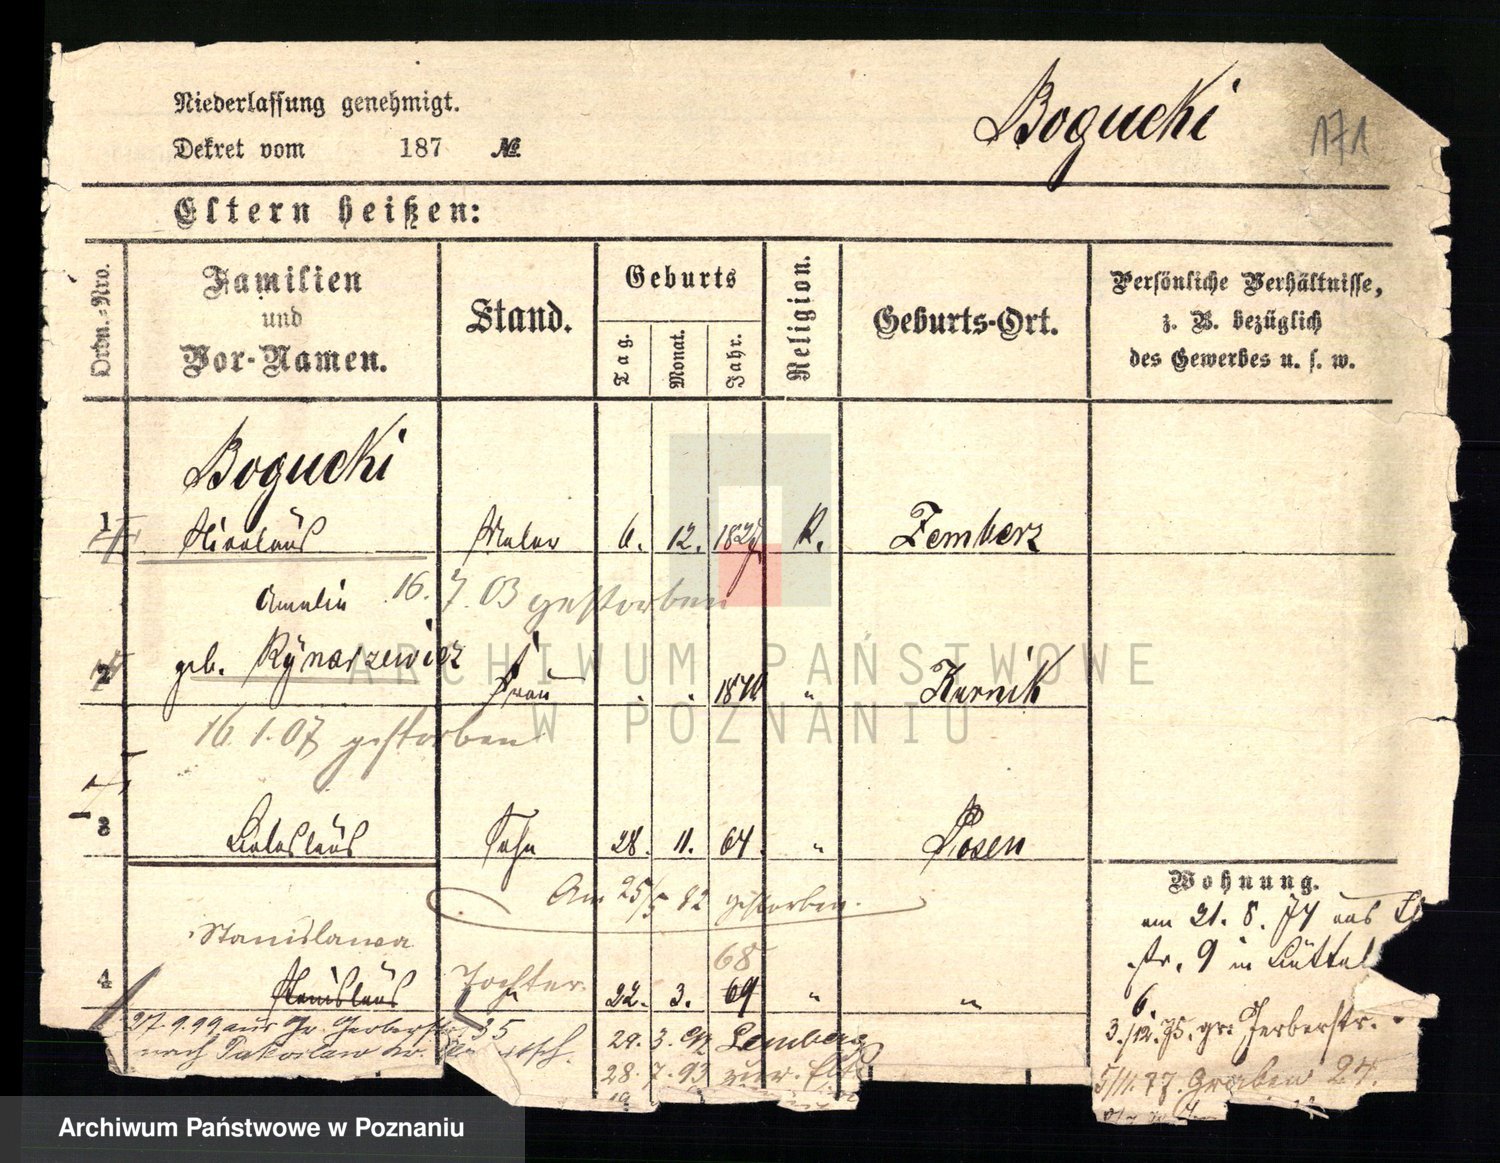 Niederlassung genehmigt.
Dekret vom 187 №
Bogucki
171
Eltern heißen:
Ordn.-Nro.
Familien
und
Vor-Namen.
Stand.
Geburts
Tag.
Monat.
Jahr.
Religion.
Geburts-Ort.
Persönliche Verhältnisse,
z. B. bezüglich
des Gewerbes u. s. w.
Bogucki
1 Nicolaus Maler 6. 12. R. Zemberz
16. 7. 03 gestorben
Amalie
2 geb. Rÿnarzewicz Frau . . " Kurnik
16. 1. 07 gestorben
3 Sohn 28. 11. 64. " Posen
Am 25/5 82 gestorben.
Wohnung.
am 21. 8. 74 aus
str. 9 in
Stanislawa
Tochter 68
4 Stanislaus 22. 3. 69 " "
6.
3./12. 75. gr. Gerberstr.
27.9.99 aus Gr. Gerberstr. 35
nach
29. 3. 92 Lemberg
28. 7. 93
5/11. 77. Graben 27.
ARCHIWUM PAŃSTWOWE
W POZNANIU
Archiwum Państwowe w Poznaniu